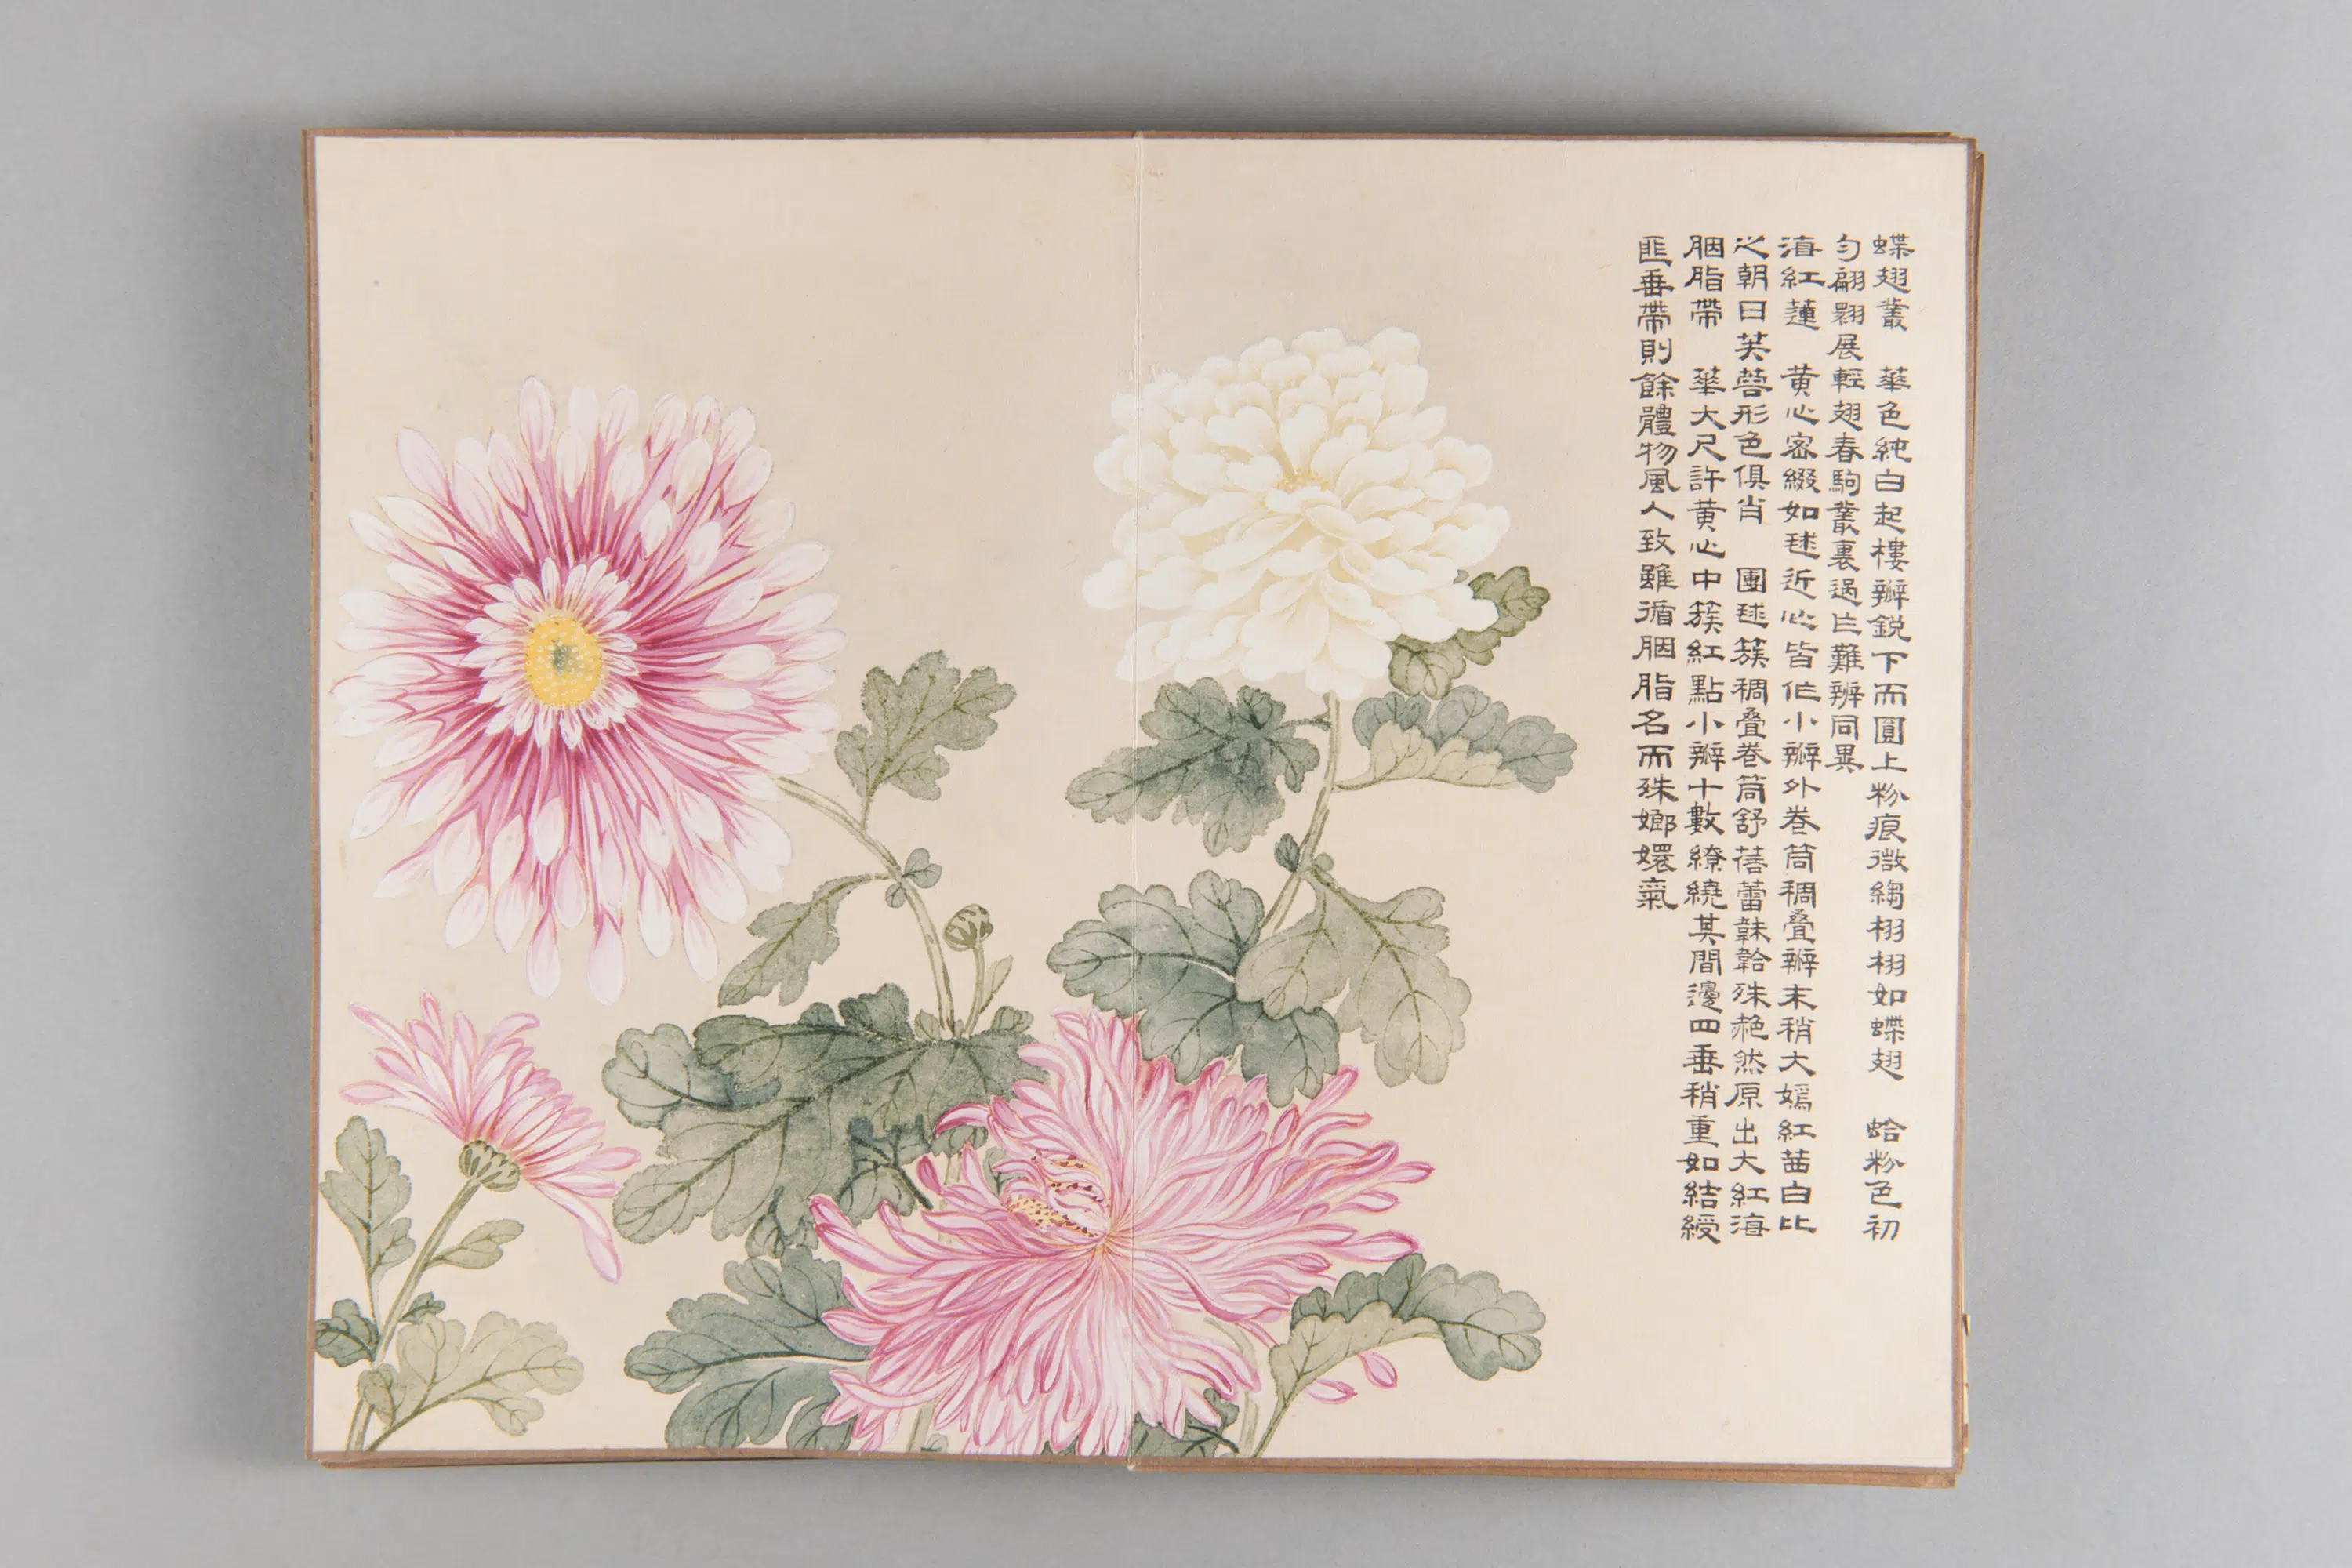 蝶翅叢 華色純白起樓瓣銳下而圓上粉痕微縐栩栩如蝶翅 蛤粉色初
勻翩翾展輕翅春駒叢裏過片難辨同異
滇紅蓮 黃心密綴如毬近心皆作小瓣外卷筒稠疊瓣末稍大嫣紅茜白比
之朝日芙蓉形色俱肖 團毬簇稠疊卷筒舒蓓蕾韎韐殊赩然原出大紅海
胭脂帶 華大尺許黃心中簇紅點小瓣十數繚繞其間邊四垂稍重如結綬
匪垂帶則餘體物風人致雖循胭脂名而殊嫏嬛氣